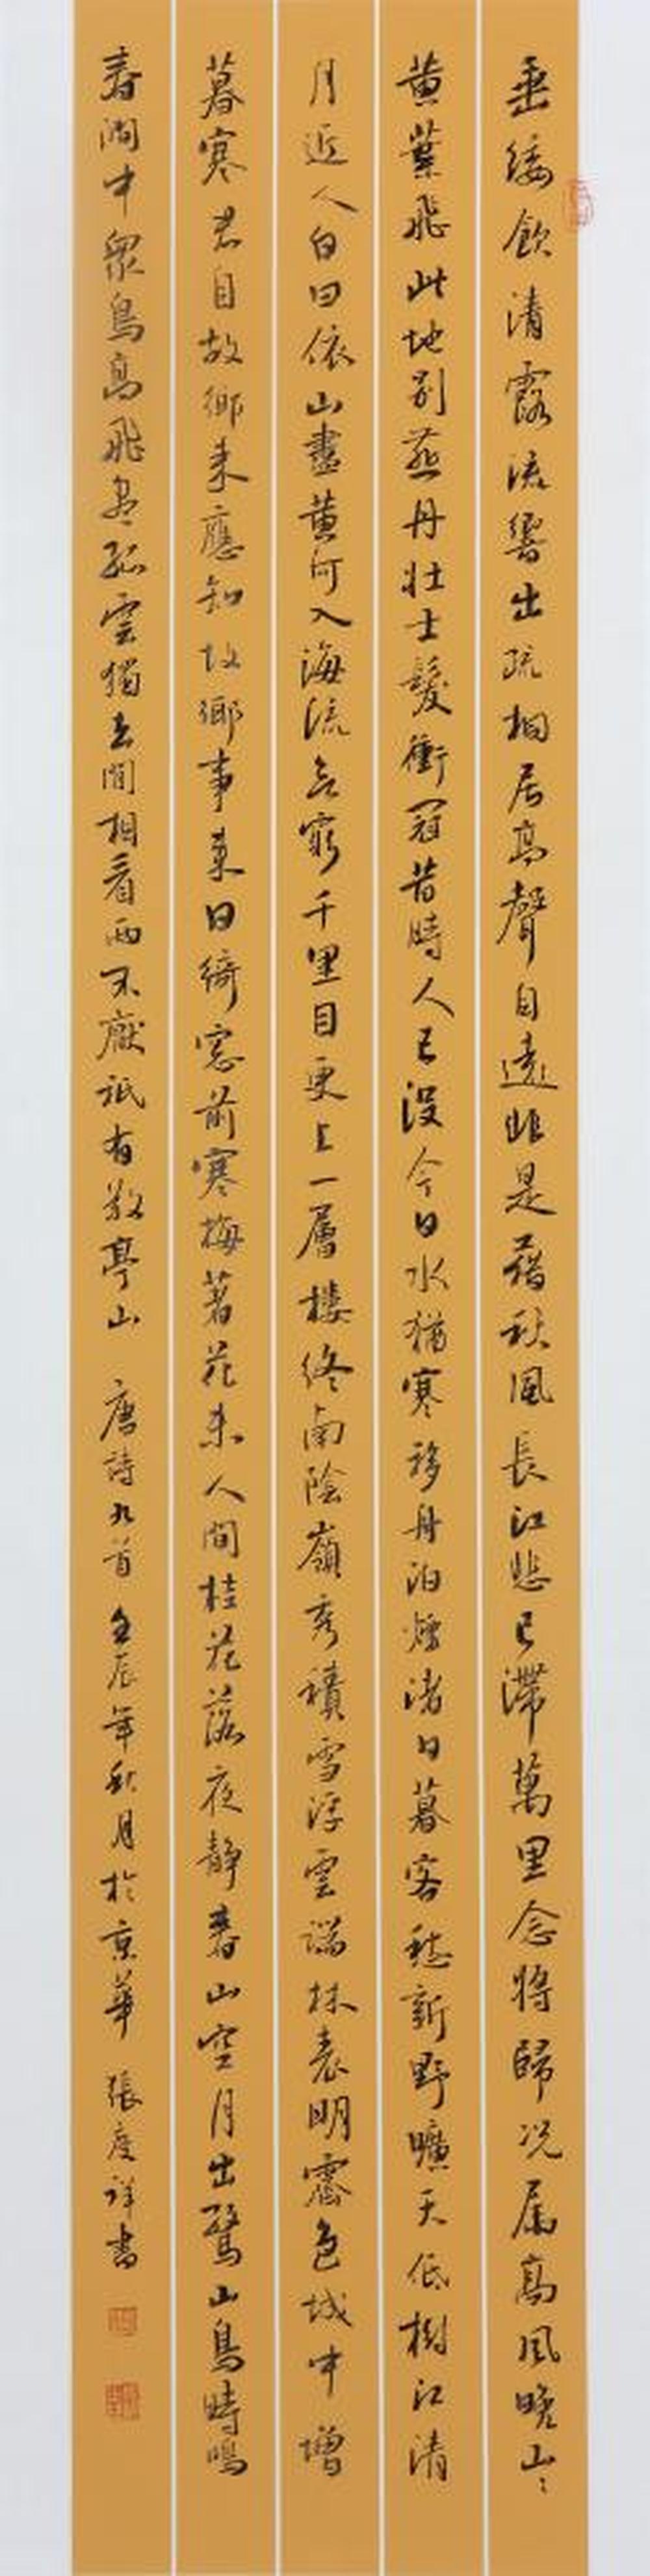 垂緌飲清露流響出疏桐居高聲自遠非是藉秋風長江悲已滯萬里念將歸況屬高風晚山〻
黄葉飛此地別燕丹壯士髮衝冠昔時人已没今日水猶寒移舟泊煙渚日暮客愁新野曠天低樹江清
月近人白日依山盡黄河入海流欲窮千里目更上一層樓終南陰嶺秀積雪浮雲端林表明霽色城中增
暮寒君自故鄉來應知故鄉事來日綺窓前寒梅著花未人間桂花落夜静春山空月出驚山鳥時鳴
春澗中衆鳥高飛盡孤雲獨去閒相看两不厭祇有敬亭山 唐詩九首 壬辰年秋月於京華 張度祥書